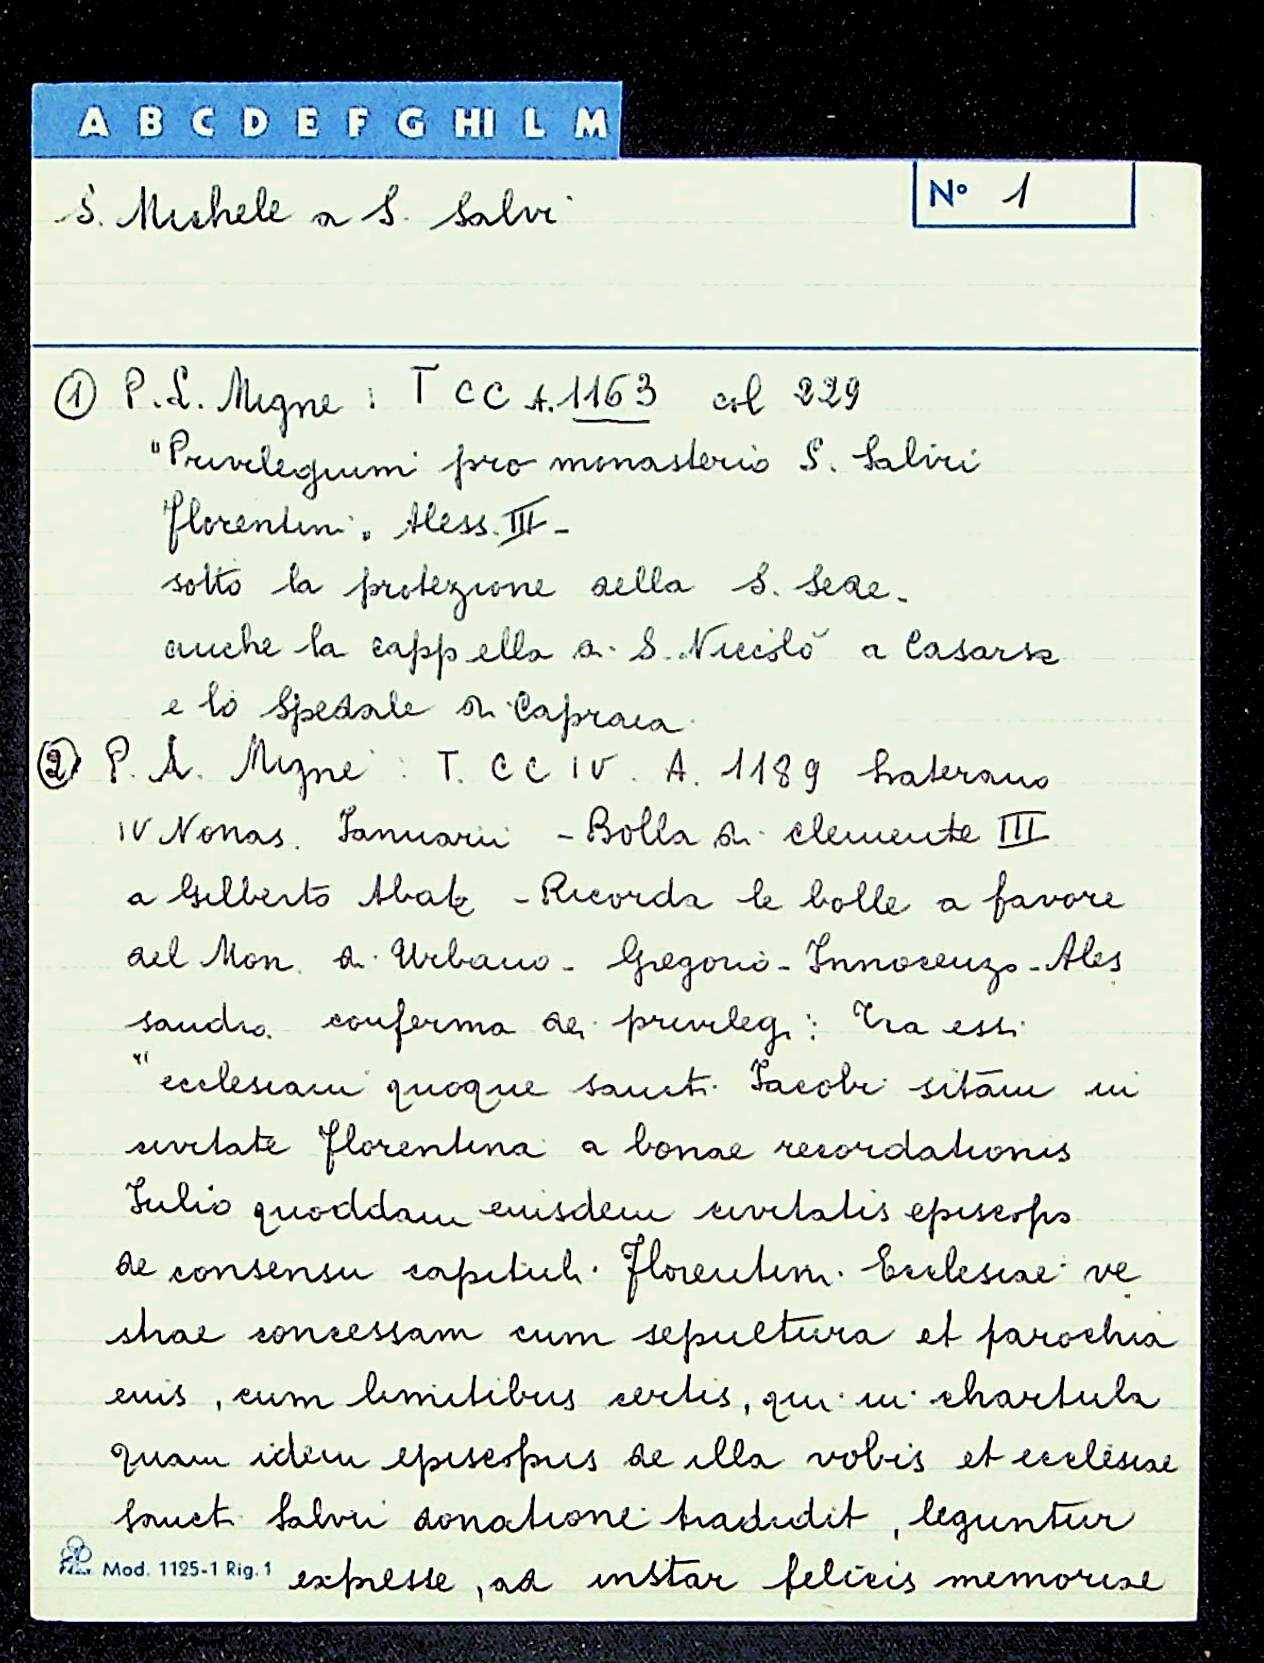 A B C D E F G HI L M
S. Michele a S. Salvi
N° 1
① P.L. Migne : T CC A. 1163 col 229
"Privilegium pro monasterio S. Salvii
Florentini. Aless. III -
sotto la protezione della S. Sede.
anche la cappella di S. Niccolò a Casarsa
e lo Spedale di Capraia
② P. L. Migne : T. CC IV. A. 1189 Laterano
IV Nonas. Ianuarii - Bolla di Clemente III
a Gilberto Abate - Ricorda le bolle a favore
del Mon. di Urbano - Gregorio - Innocenzo - Ales
sandro. conferma dei privilegi : Tra essi
"ecclesiam quoque sancti Iacobi sitam in
civitate Florentina a bonae recordationis
Iulio quoddam eiusdem civitatis episcopo
de consensu capituli Florentini Ecclesiae ve
strae concessam cum sepultura et parochia
eius, cum limitibus certis, qui in chartula
quam idem episcopus de illa vobis et ecclesiae
Sancti Salvii donatione tradidit, leguntur
expresse, ad instar felicis memoriae
Mod. 1125-1 Rig. 1